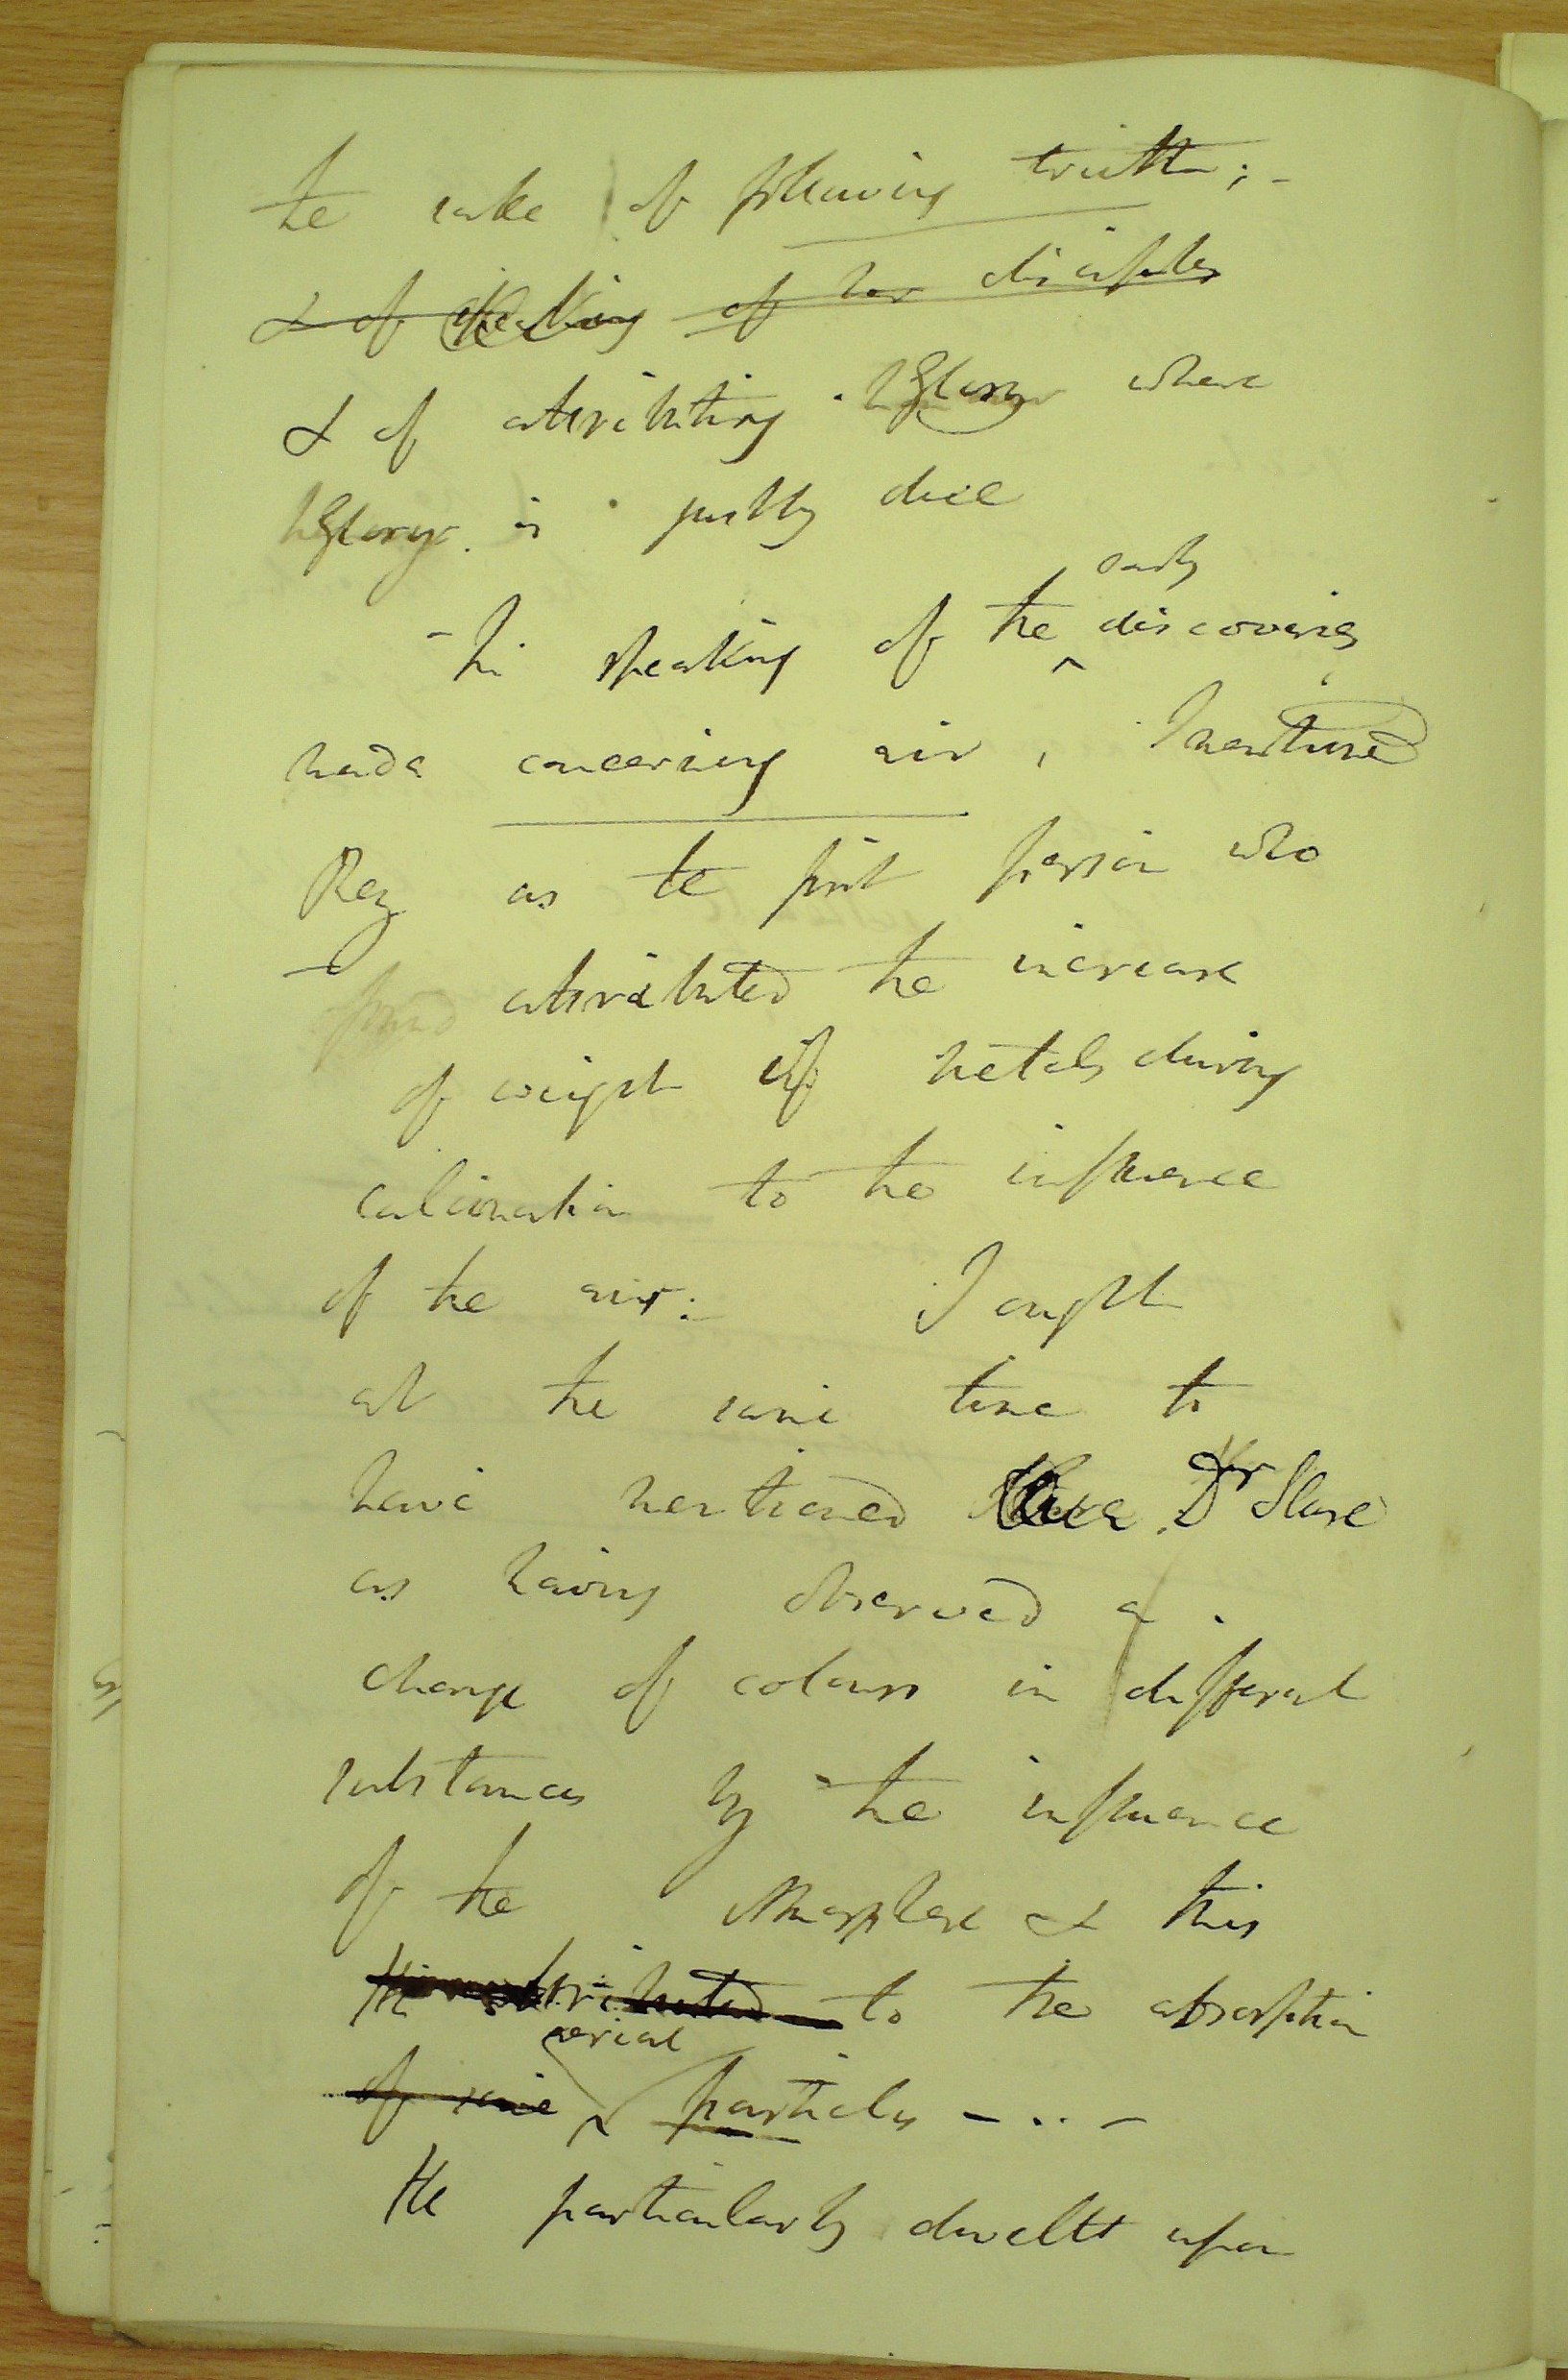 the sake of following truth; -
& of speaking of her disciples
& of attributing Glory where
Glory is justly due
- In speaking of the early discoveries
made concerning air, I mentioned
Rey as the first person who
found attributed the increase
of weight of metals during
calcination to the influence
of the air: I ought
at the same time to
have mentioned Dr Slare
as having observed a
change of colours in different
substances by the influence
of the atmosphere & this
He attributed to the absorption
of some aerial particles - .. -
He particularly dwellt upon